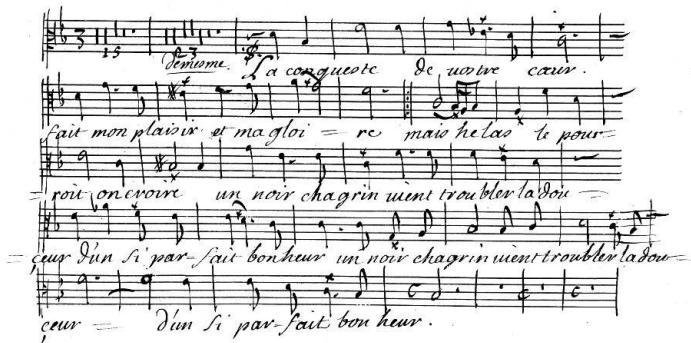 3 15 3
demesme. La conqueste de vostre cœur.
fait mon plaisir et ma gloi = re mais helas le pour=
= roit on croire un noir chagrin vient troubler la dou =
= çeur d'un si par-fait bonheur un noir chagrin vient troubler la dou=
çeur = d'un si par-fait bon heur.